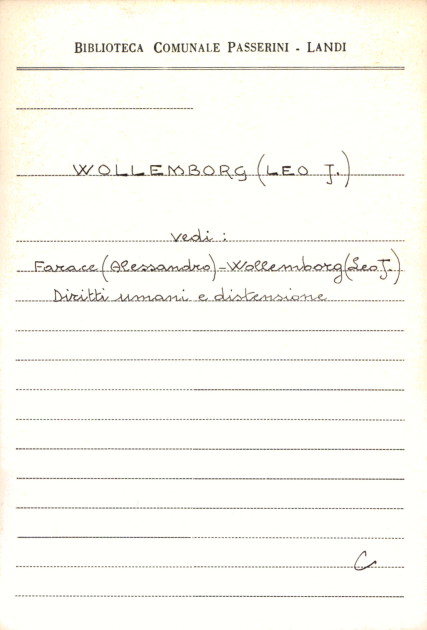 BIBLIOTECA COMUNALE PASSERINI - LANDI
WOLLEMBORG (LEO J.)
vedi :
Farace (Alessandro) - Wollemborg (Leo J.)
Diritti umani e distensione
C